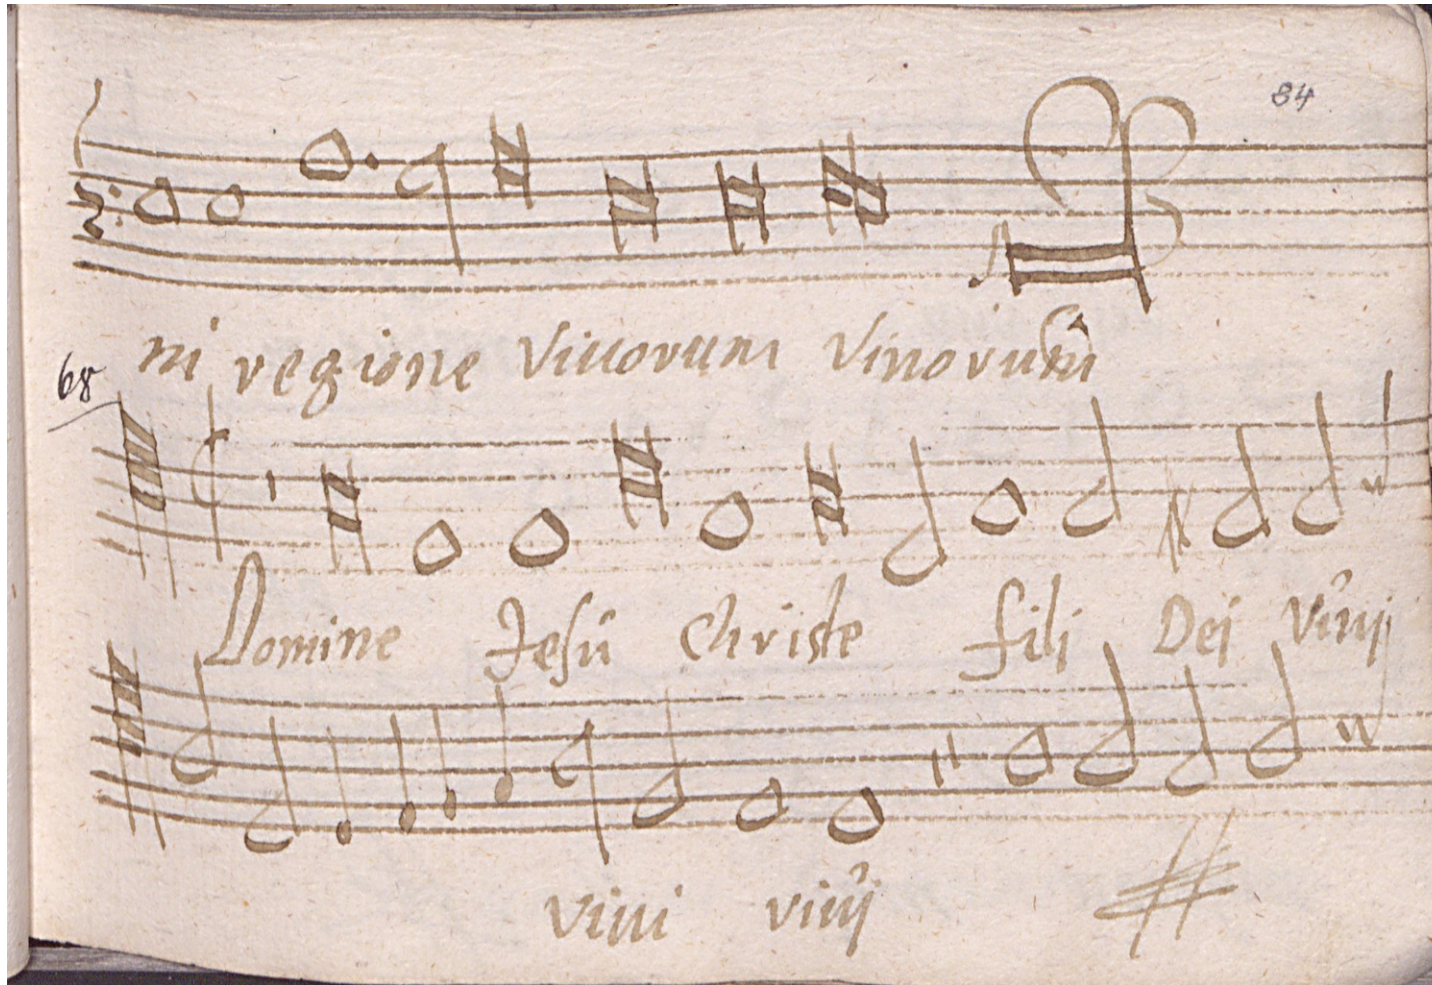 84
ni regione viuorum vinorum
68
Domine Jesu Christe fili Dei viuij
viui viuij